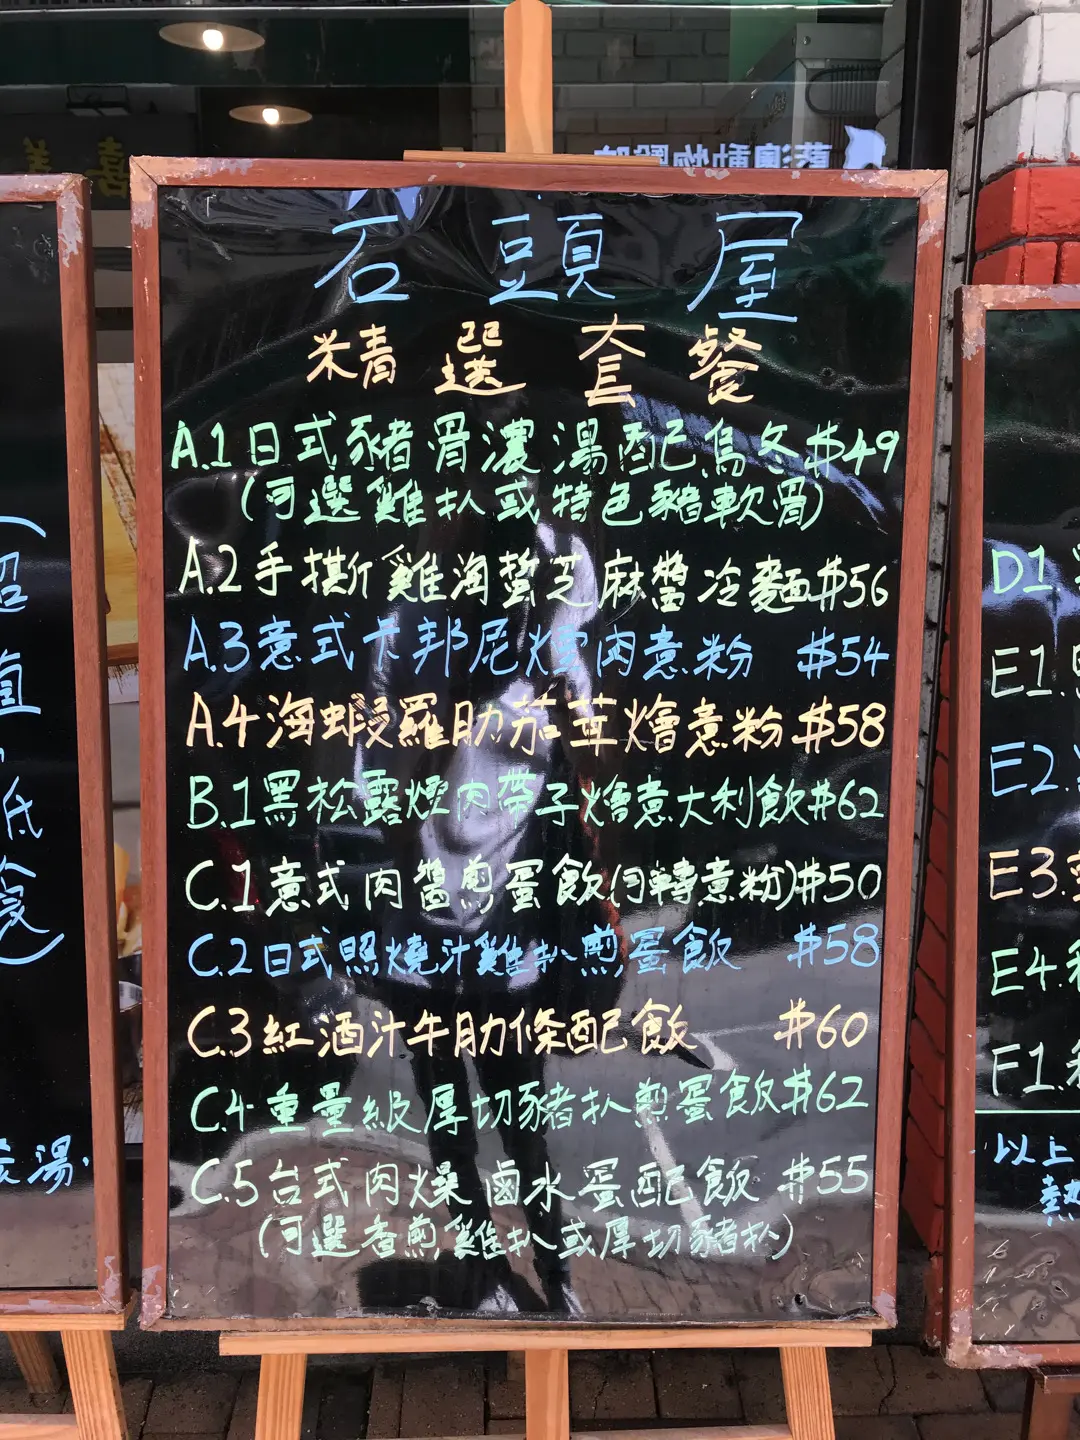 石頭屋
精選套餐
A.1日式豬骨濃湯配烏冬$49
(可選雞扒或特色豬軟骨)
A.2手撕雞海蜇芝麻醬冷麵$56
A.3意式卡邦尼煙肉意粉 $54
A.4海蝦扇羅肋茄茸燴意粉$58
B.1黑松露煙肉帶子燴意大利飯$62
C.1意式肉醬煎蛋飯(可轉意粉)$50
C.2日式照燒汁雞扒煎蛋飯 $58
C.3紅酒汁牛肋條配飯 $60
C.4重量級厚切豬扒煎蛋飯$62
C.5台式肉燥鹵水蛋配飯 $55
(可選香煎雞扒或厚切豬扒)
湯
D1
E1.
E2.
E3.
E4.
F1.
以上
熱